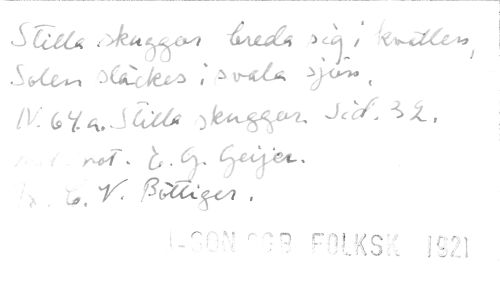 Stilla skuggor breda sig i kvällen,
Solen släckes i svala sjön.
IV. 64.a. Stilla skuggor. Sid. 32.
not. E. G. Geijer.
C. V. Böttiger.
FOLKSK 1921